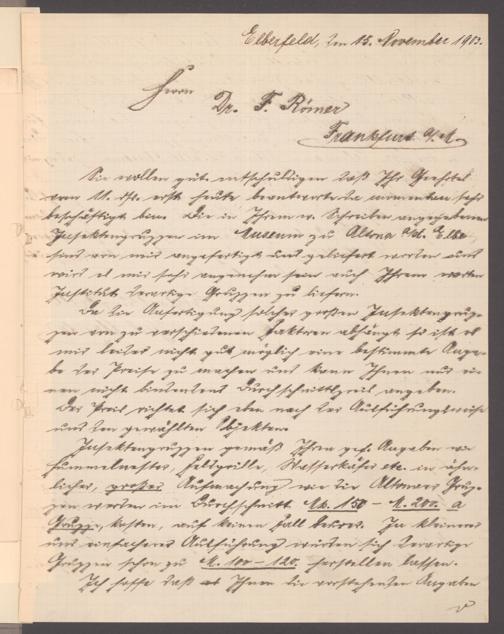 Elberfeld, den 15. November 1903.
Herrn
Dr. F. Römer
Frankfurt a/M.
Sie wollen gütl. entschuldigen daß Ihr Geehrtes
vom 11. ds. erst heute beantworte da momentan sehr
beschäftigt bin. Die in Ihrem w. Schreiben angegebenen
Insektengruppen im Museum zu Altona a/d. Elbe,
sind von mir angefertigt und geliefert worden und
wird es mir sehr angenehm sein auch Ihrem werten
Institut derartige Gruppen zu liefern.
Da die Anfertigung solcher großen Insektengrup-
pen von zu verschiedenen Faktoren abhängt so ist es
mir leider nicht gut möglich eine bestimmte Anga-
be der Preise zu machen und kann Ihnen nur ei-
nen nicht bindenden Durchschnittspreis angeben.
Der Preis richtet sich eben nach der Ausführungsweise
und den gewählten Objekten.
Insektengruppen gemäß Ihren gef. Angaben wie
Hummelnester, Feldgrille, Wasserkäfer etc. in ähn-
licher, großer Aufmachung wie die Altonaer Grup-
pen werden im Durchschnitt Mk. 150 – M. 200. a
Gruppe, kosten, auf keinen Fall teurer. In kleinerer
und einfacherer Ausführung würden sich derartige
Gruppen schon zu M. 100 – 120. herstellen lassen.
Ich hoffe daß Ihnen die vorstehenden Angaben